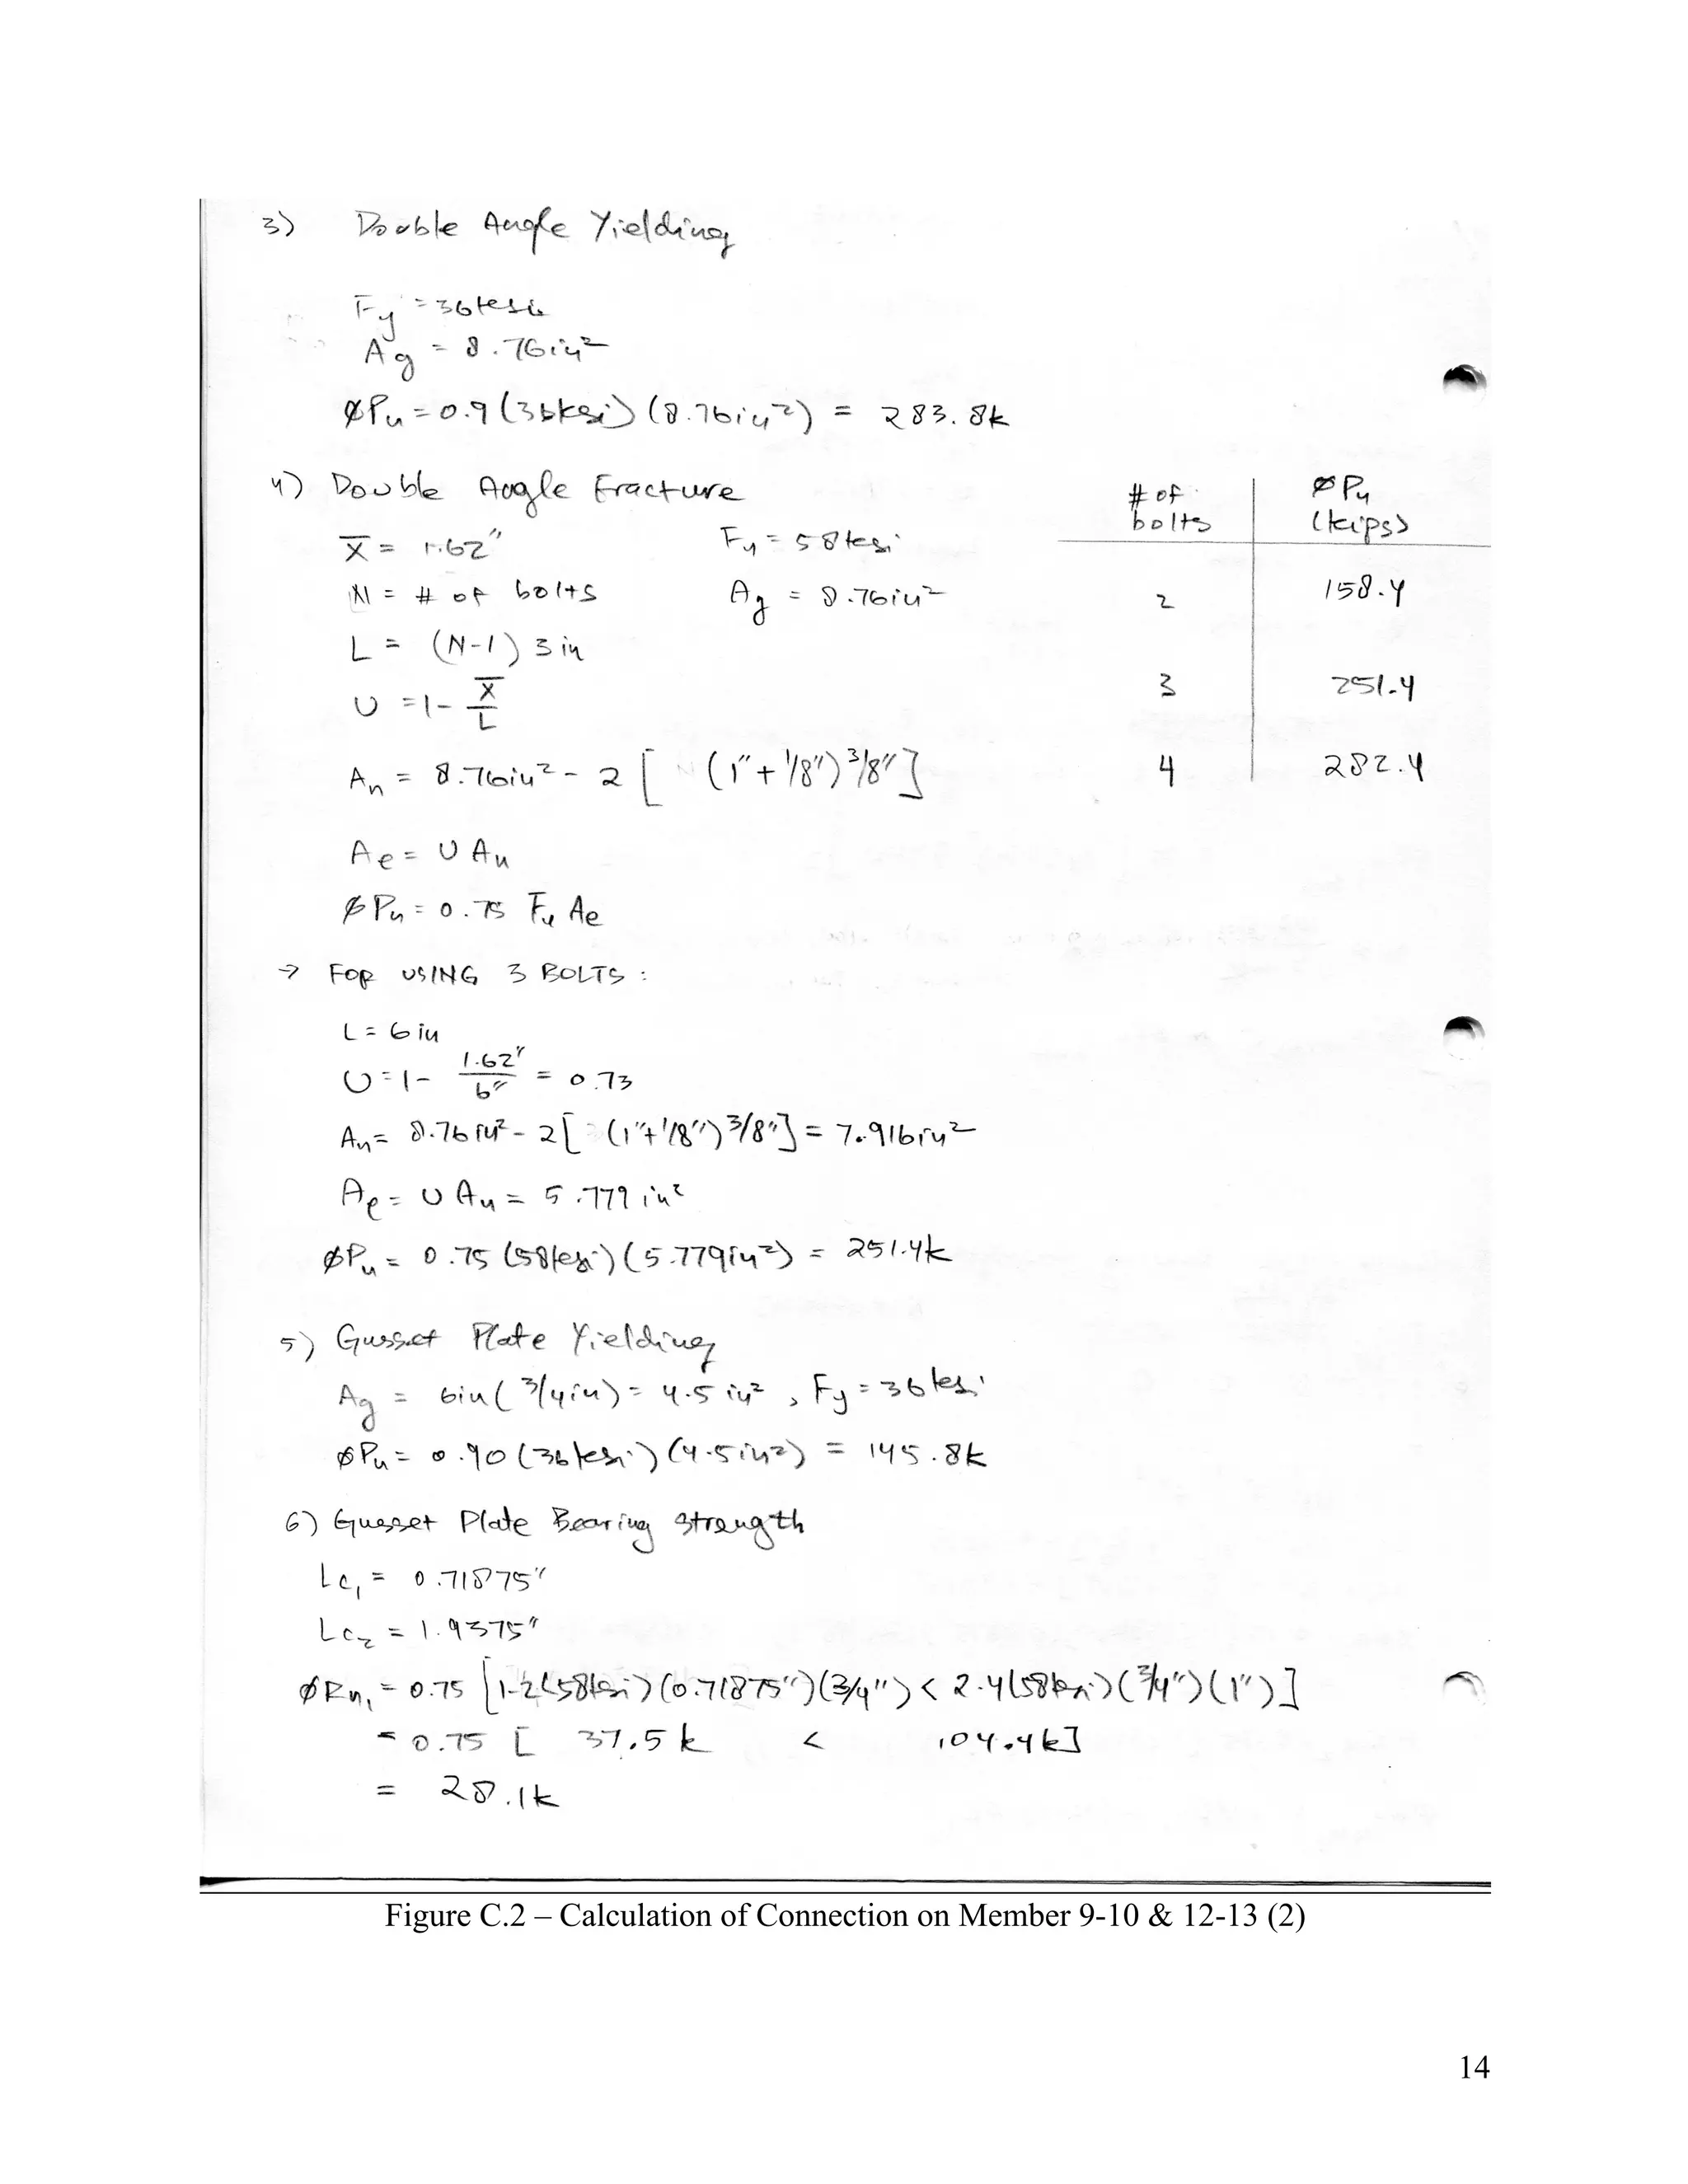 3) Double Angle Yielding
Fy = 36 ksi
Ag = 8.76 in²
φPn = 0.9 (36ksi) (8.76in²) = 283.8k
4) Double Angle Fracture
x̅ = 1.62"
Fu = 58 ksi
N = # of bolts
Ag = 8.76in²
L = (N-1) 3 in
U = 1 - x̅/L
An = 8.76in² - 2 [ (1" + 1/8") 3/8" ]
Ae = U An
φPn = 0.75 Fu Ae
# of bolts | φPn (kips)
2 | 158.4
3 | 251.4
4 | 282.4
→ FOR USING 3 BOLTS :
L = 6 in
U = 1 - 1.62"/6" = 0.73
An = 8.76 in² - 2 [ (1"+1/8") 3/8" ] = 7.916in²
Ae = U An = 5.779 in²
φPn = 0.75 (58ksi) (5.779in²) = 251.4k
5) Gusset Plate Yielding
Ag = 6in (3/4in) = 4.5 in² , Fy = 36 ksi
φPn = 0.90 (36ksi) (4.5in²) = 145.8k
6) Gusset Plate Bearing Strength
Lc₁ = 0.71875"
Lc₂ = 1.9375"
φRn₁ = 0.75 [1.2(58ksi) (0.71875") (3/4") < 2.4(58ksi) (3/4") (1")]
= 0.75 [ 37.5 k < 104.4k]
= 28.1k
Figure C.2 – Calculation of Connection on Member 9-10 & 12-13 (2)
14